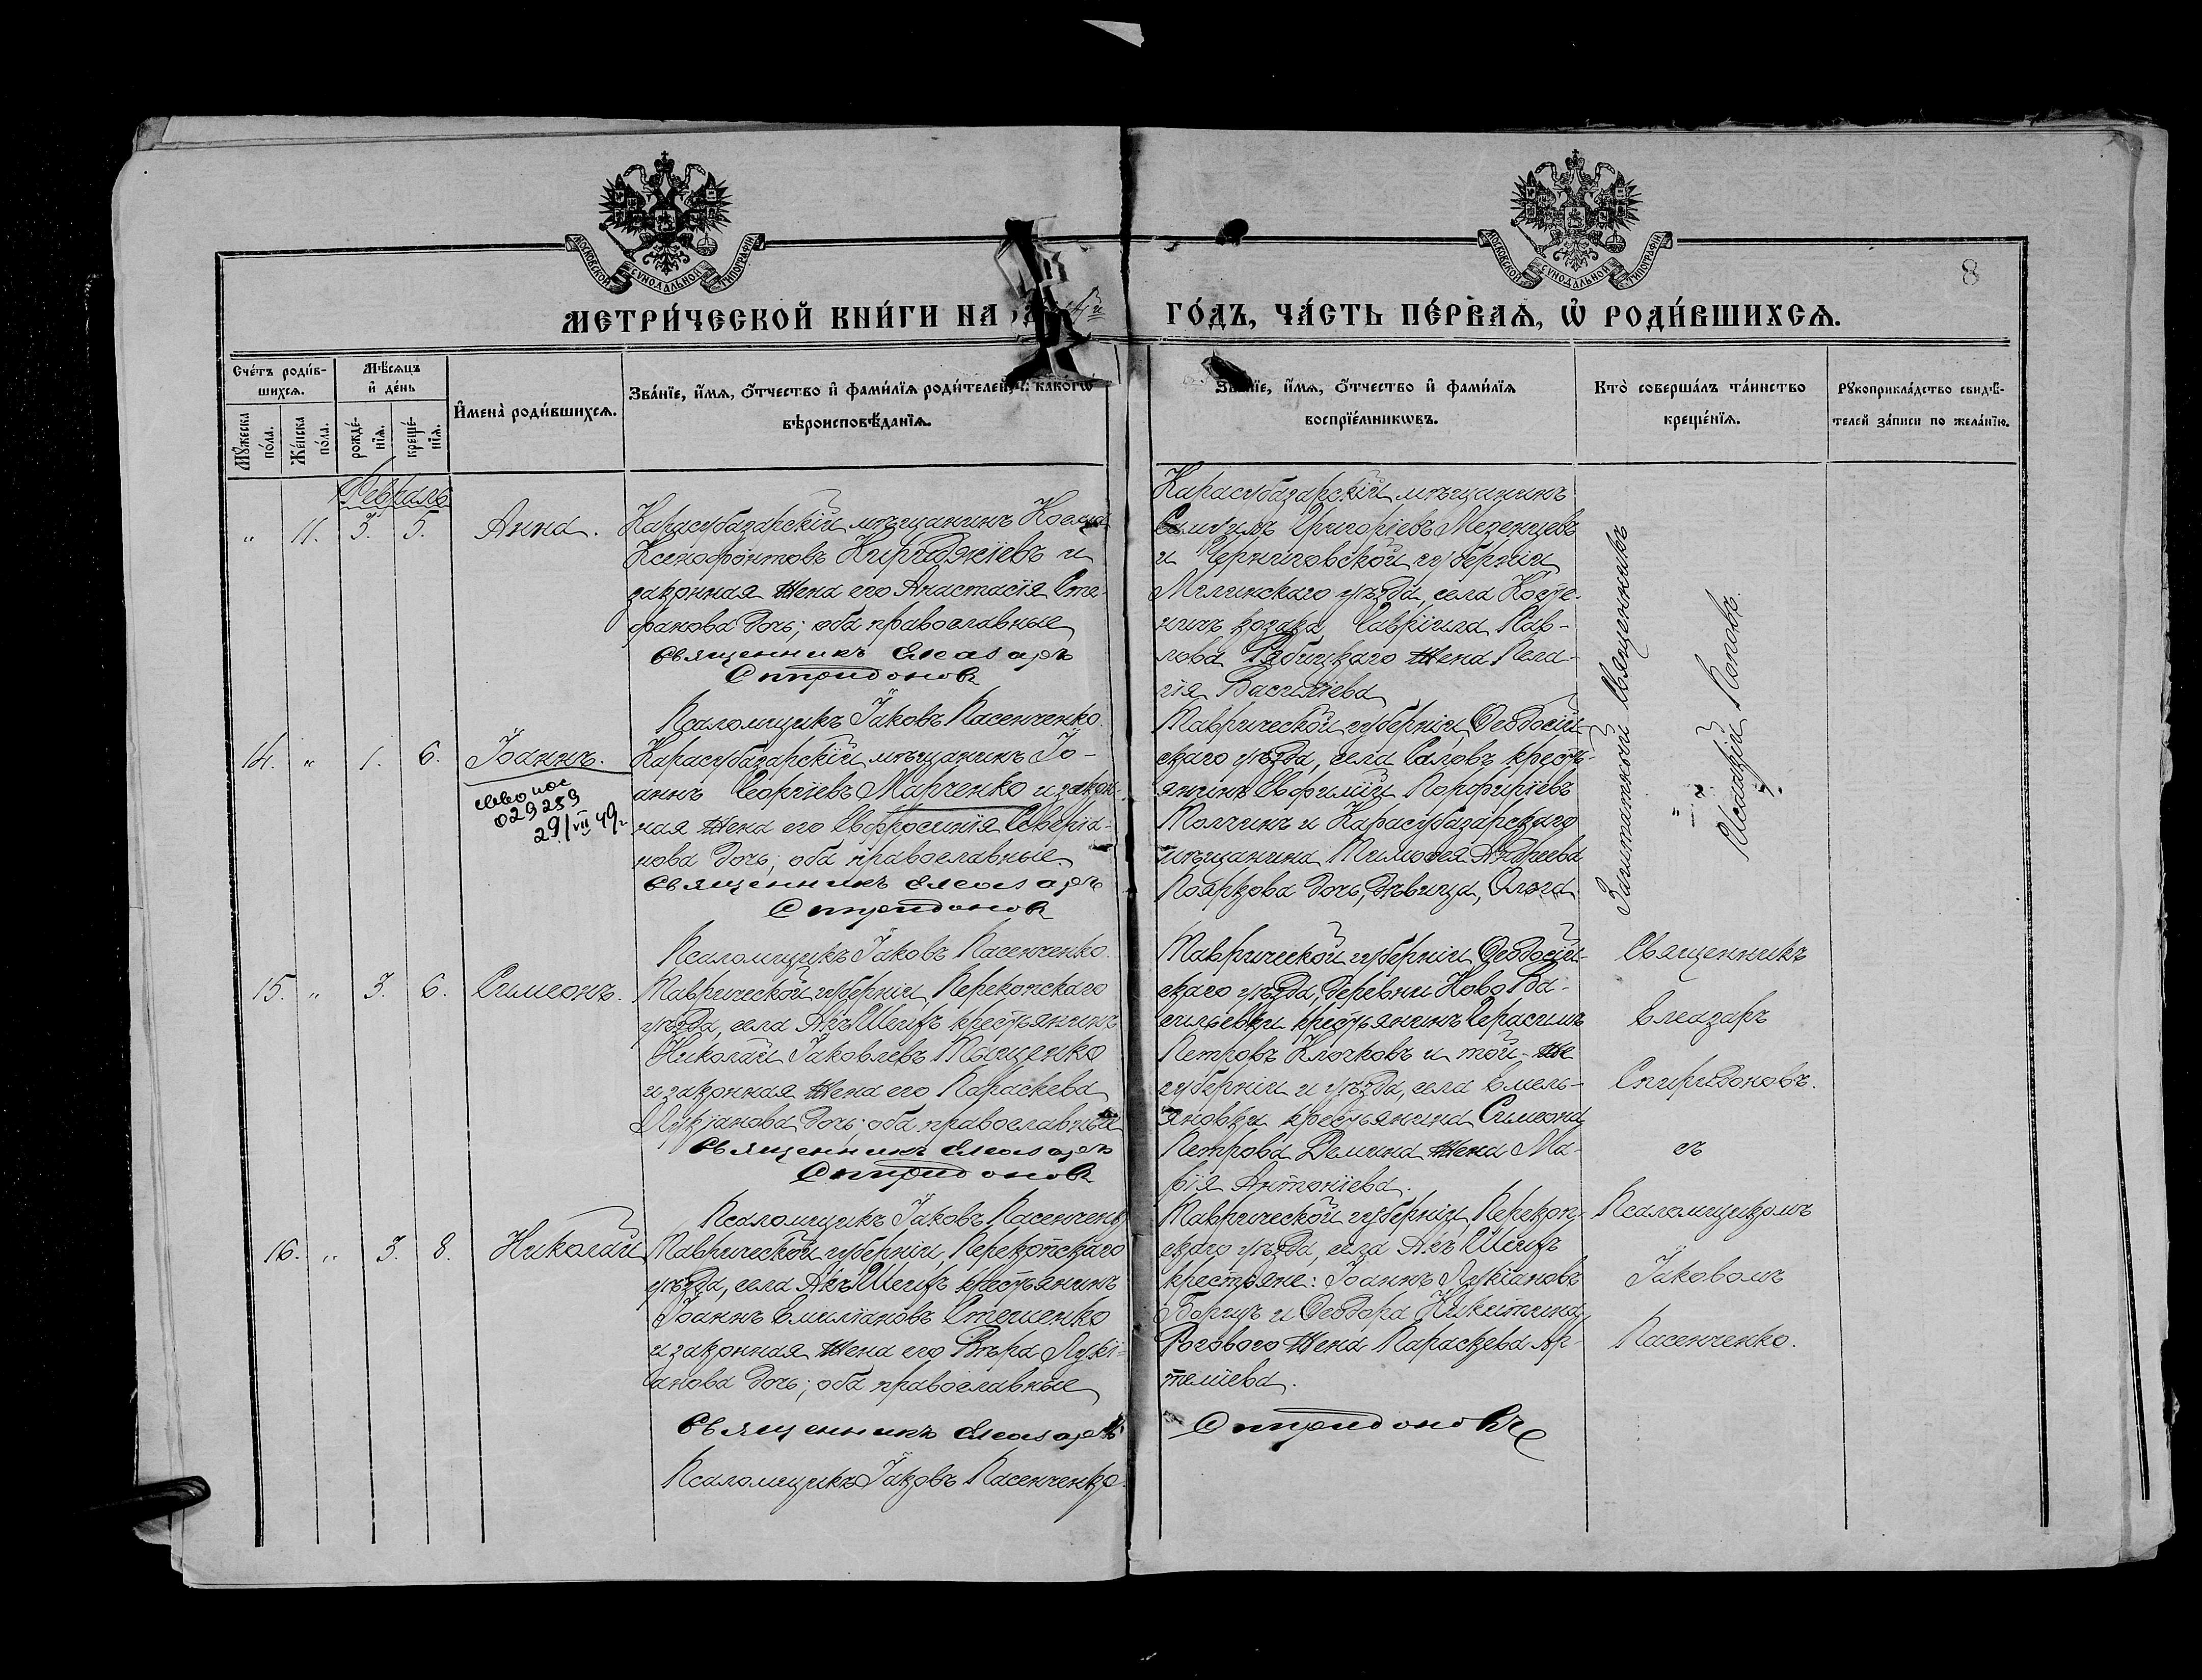 МОСКОВСКОЙ СѴНОДАЛЬНОЙ ТИПОГРАФІИ
МОСКОВСКОЙ СѴНОДАЛЬНОЙ ТИПОГРАФІИ
8
МЕТРИ́ЧЕСКОЙ КНИ́ГИ НА
ГО́ДЪ, ЧА́СТЬ ПЕ́РВАѦ, Ѡ҆ РОДИ́ВШИХСѦ.
Сче́тъ роди́в-
шихсѧ.
Мѣ́сѧцъ
и҆ де́нь
Мꙋ́жеска
по́ла.
Же́нска
по́ла.
рожде́-
нїѧ.
креще́-
нїѧ.
И҆мена̀ роди́вшихсѧ.
Зва́нїе, и҆́мѧ, ѻ҆́тчество и҆ фами́лїѧ роди́телей, и҆ како́гѡ
вѣроисповѣ́данїѧ.
Зва́нїе, и҆́мѧ, ѻ҆́тчество и҆ фами́лїѧ
воспрїе́мникѡвъ.
Кто̀ соверша́лъ та́инство
креще́нїѧ.
Рꙋкоприкла́дство свидѣ́-
телей за́писи по жела́нїю.
Февраль
" 11. 3. 5. Анна.
Карасубазарскій мѣщанинъ Косма
Ксенофонтовъ Кириджіевъ и
законная жена его Анастасія Сте-
фанова дочь; оба православные
Священникъ Елеазаръ
Спиридоновъ
Псаломщикъ Іаковъ Пасенченко.
Карасубазарскій мѣщанинъ
Григоріевъ Мезенцевъ
и Черниговской губерніи
Мглинскаго уѣзда, села Косте-
ничъ козака Гавріила Пав-
лова Рабицкаго жена Пела-
гія Васильева
Заштатный Священникъ
Исаакій Поповъ.
14. " 1. 6. Іоаннъ.
029289
29/VII 49г
Карасубазарскій мѣщанинъ Іо-
аннъ Георгіевъ Марченко и закон-
ная жена его Евфросинія Северіа-
нова дочь; оба православные
Священникъ Елеазаръ
Спиридоновъ
Псаломщикъ Іаковъ Пасенченко.
Таврической губерніи Ѳеодосій-
скаго уѣзда, села Саловъ кресть-
янинъ Евфимій Порфиріевъ
Толчинъ и Карасубазарскаго
мѣщанина Тимоѳея Андреева
Пояркова дочь, дѣвица, Ольга
15. " 3. 6. Симеонъ.
Таврической губерніи, Перекопскаго
уѣзда, села Акъ Шеихъ крестьянинъ
Николай Іаковлевъ Тищенко
и законная жена его Параскева
Лукіанова дочь; оба православные
Священникъ Елеазаръ
Спиридоновъ
Псаломщикъ Іаковъ Пасенченко
Таврической губерніи Ѳеодосій-
скаго уѣзда, деревни Ново Ва-
сильевки крестьянинъ Герасимъ
Петровъ Клочковъ и той-же
губерніи и уѣзда, села Емель-
яновки крестьянина Симеона
Петрова Демина жена Ма-
рія Антоніева.
Священникъ
Елеазаръ
Спиридоновъ.
съ
Псаломщикомъ
Іаковомъ
Пасенченко.
16. " 3. 8. Николай
Таврической губерніи, Перекопскаго
уѣзда, села Акъ Шеихъ крестьянинъ
Іоаннъ Емиліановъ Стешенко
и законная жена его Вѣра Лукі-
анова дочь; оба православные
Священникъ Елеазаръ
Спиридоновъ
Псаломщикъ Іаковъ Пасенченко.
Таврической губерніи, Перекоп-
скаго уѣзда, села Акъ Шеихъ
крестьяне: Іоаннъ Лукіановъ
Борщъ и Ѳеодора Никитина
Рогового жена Параскева Ар-
теміева.